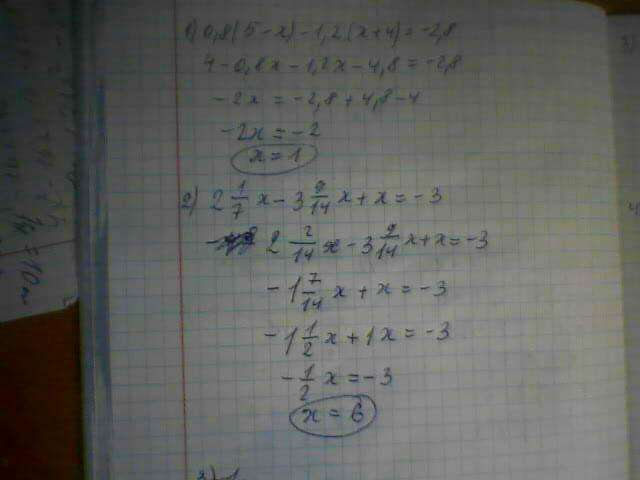 1) 0,8(5-x)-1,2(x+4)=-2,8
4-0,8x-1,2x-4,8=-2,8
-2x=-2,8+4,8-4
-2x=-2
x=1
2) 2 1/7 x - 3 9/14 x + x = -3
2 2/14 x - 3 9/14 x + x = -3
-1 7/14 x + x = -3
-1 1/2 x + 1x = -3
-1/2 x = -3
x = 6